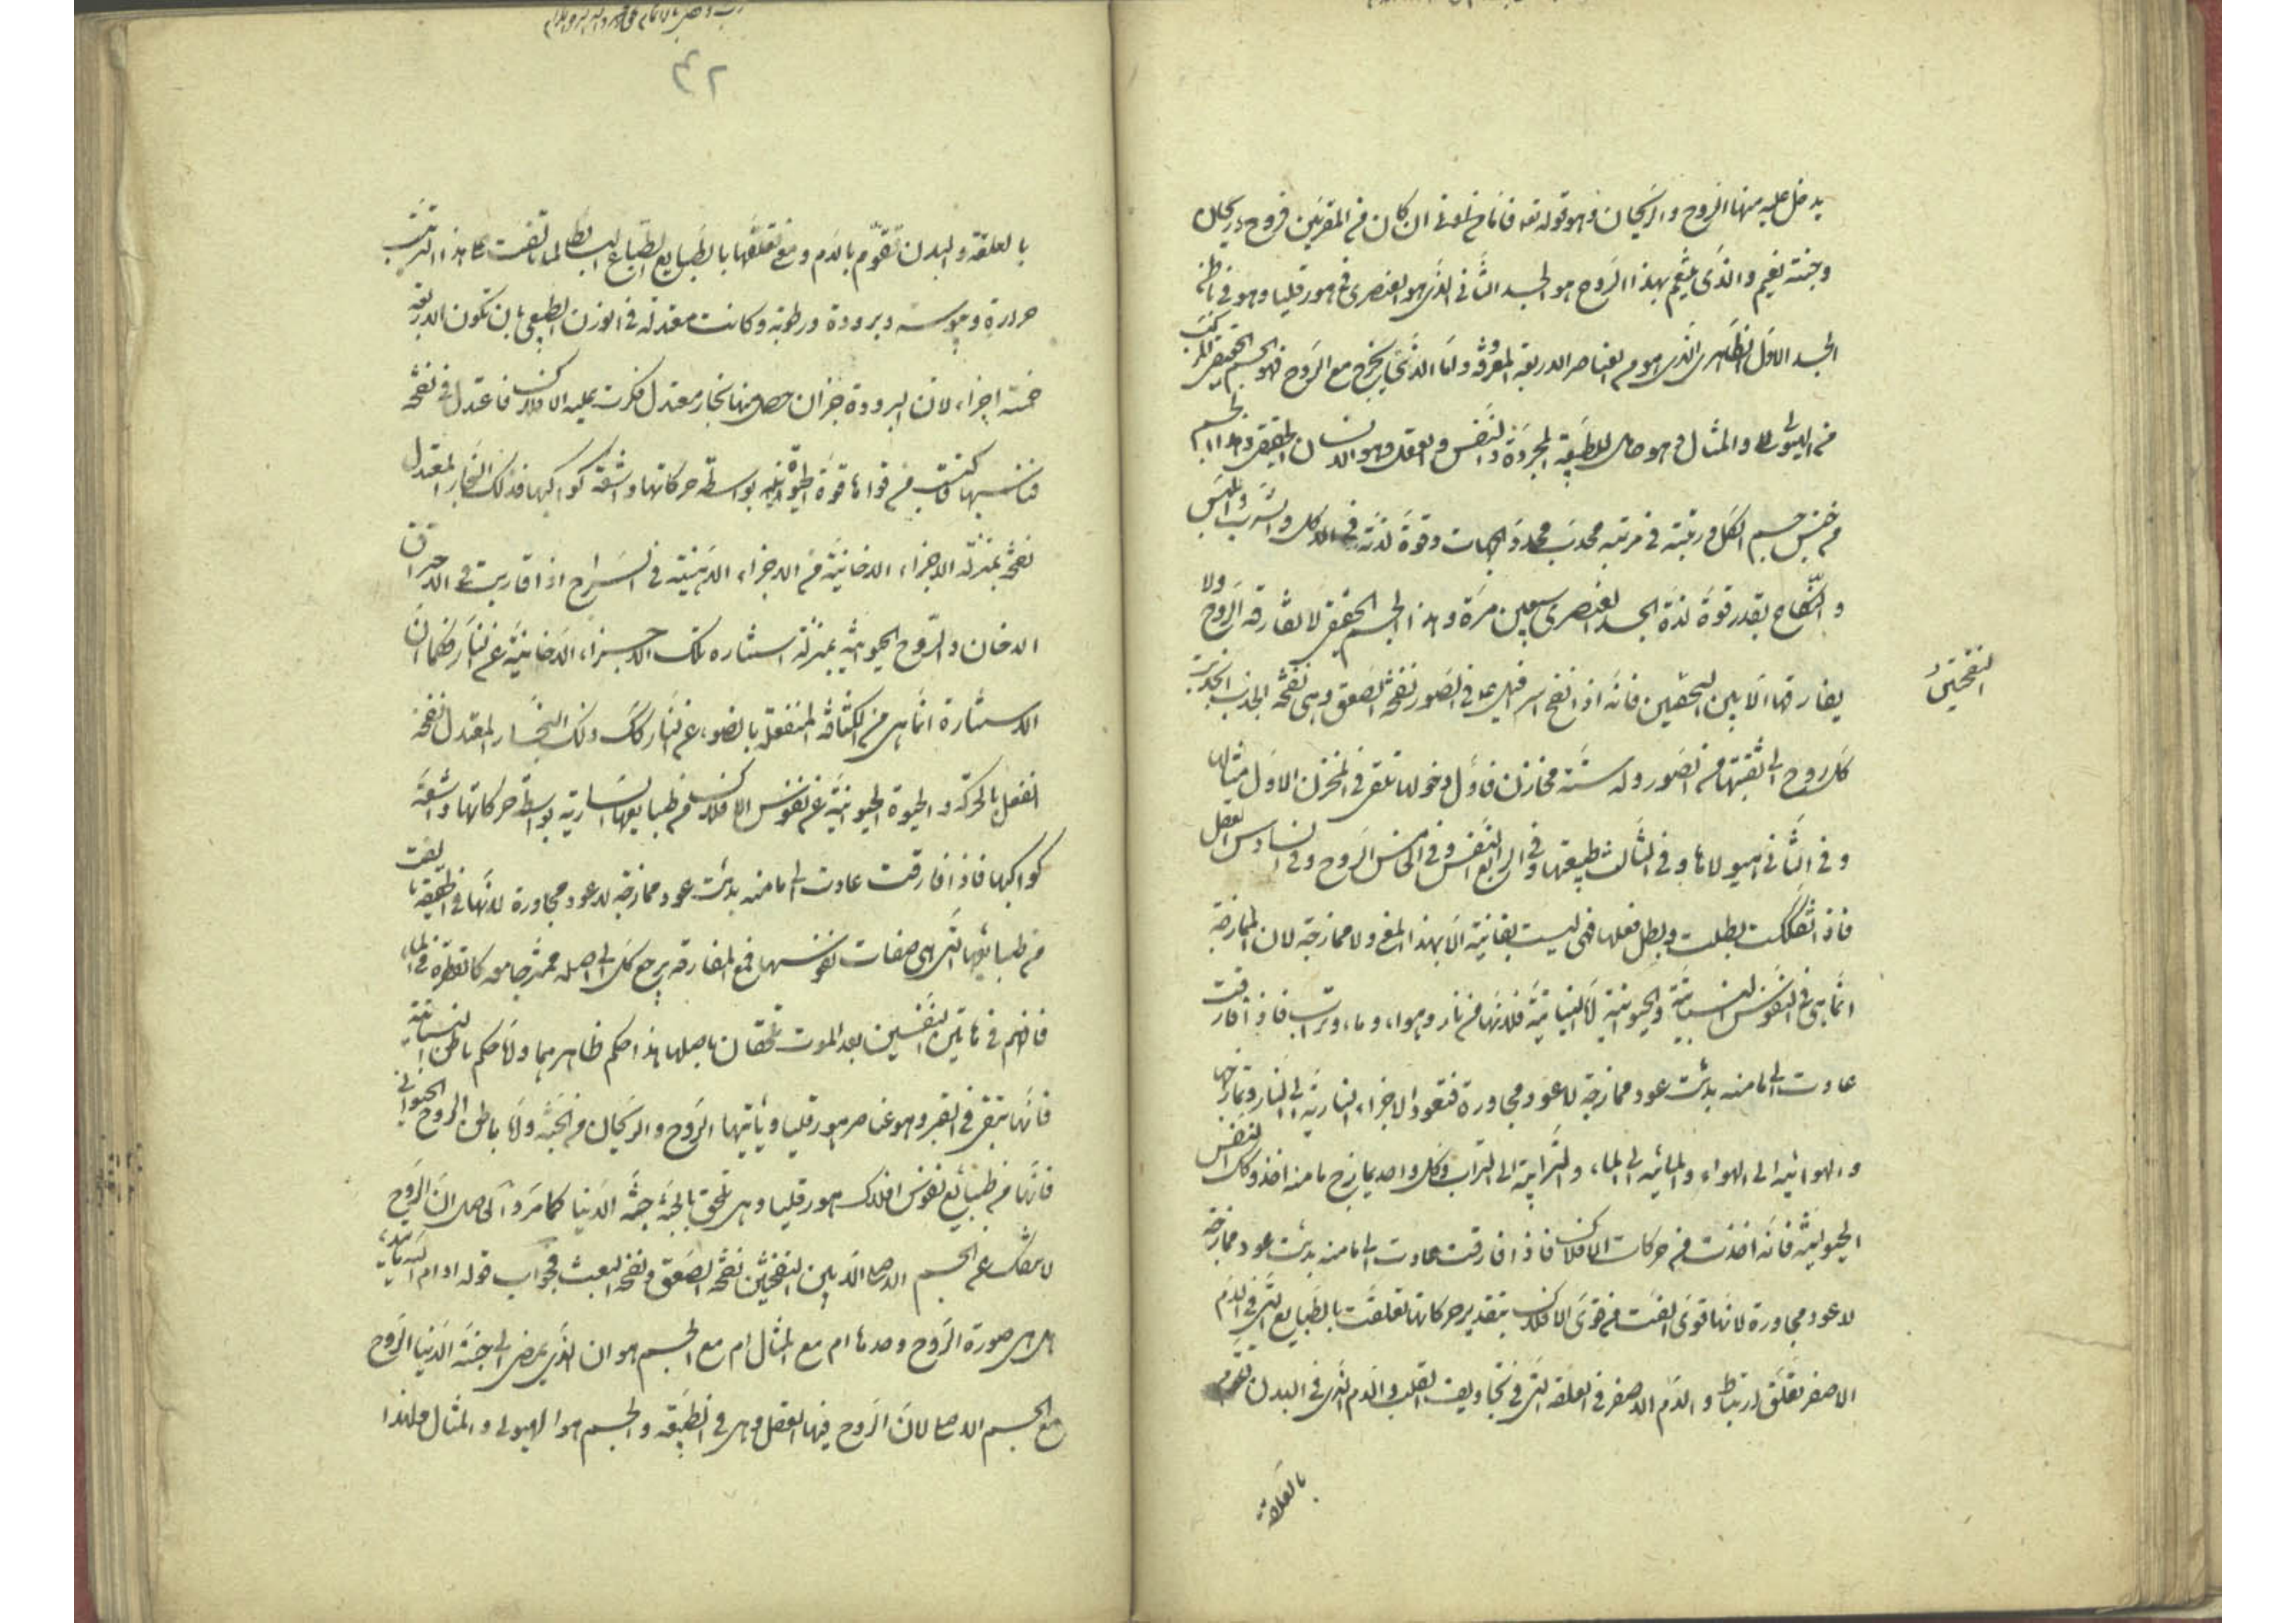 يدخل عليه منها الروح والريحان وهو قوله تعه فاما ان كان من المقربين فروح وريحان
وجنة نعيم والذي يتنعم بهذا الروح هو الجسد الثاني الذي هو العنصري في هورقليا وهو في باطن
الجسد الاول الظاهري الذي هو من العناصر الاربعة المعروفة واما الذي يخرج مع الروح فهو الجسم الحقيقي المركب
من الهيولى والمثال وهو حامل للطبيعة المجردة والنفس والعقل وهو الانسان الحقيقي وهذا الجسم
من جنس جسم الكل ورتبته في مرتبة محدب محدد الجهات وقوة لذته في الاكل والشرب واللمس
والنكاح بقدر قوة لذة الجسد العنصري سبعين مرة وهذا الجسم الحقيقي لا تفارقه الروح ولا
يفارقها الا بين النفختين فانه اذا نفخ اسرافيل ع في الصور نفخة الصعق وهي نفخة الجذب انجذبت
النفختين
كل روح الى ثقبتها من الصور وله ستة مخازن فاول دخولها تلقى في المخزن الاول مثالها
وفي الثاني هيولاها وفي الثالث طبيعتها وفي الرابع النفس وفي الخامس الروح وفي السادس العقل
فاذا تفككت بطلت وبطل فعلها فهي ليست بفانية الا بهذا المعنى ولا ممازجة لان الممازجة
انما هي في النفوس النباتية والحيوانية اما النباتية فلانها من نار وهواء وماء وتراب فاذا فارقت
عادت الى ما منه بدئت عود ممازجة لا عود مجاورة فتعود الاجزاء النارية الى النار وتمازجها
والهوائية الى الهواء والمائية الى الماء والترابية الى التراب وكل واحد يمازج ما منه اخذ وكك النفس
الحيوانية فانه اخذت من حركات الافلاك فاذا فارقت عادت الى ما منه بدئت عود ممازجة
لا عود مجاورة لانها قوى الفت من قوى الافلاك بتقدير حركاتها تعلقت بالطبايع التي في الدم
الاصفر تعلق ارتباط والدم الاصفر في العلقة التي في تجاويف القلب والدم الذي في البدن تقوم
بالعلقة
٤٢
بالعلقة والبدن تقوم بالدم ومع تعلقها بالطبايع الطبايع البسائط لما تالفت على هذا الترتيب
حرارة ويبوسة وبرودة ورطوبة وكانت معتدلة في الوزن الطبيعي بان تكون الاربعة
خمسة اجزاء لان البرودة جزان حصل منها بخار معتدل فكرت عليه الافلاك فاعتدل في نضجه
فناسبها فاكتسب من قواها قوة الحيوة بواسطة حركاتها واشعة كواكبها فذلك البخار المعتدل
نضجه بمنزلة الاجزاء الدخانية من الاجزاء الدهنية في السراج اذا قاربت في الاحتراق
الدخان والروح الحيوانية بمنزلة استنارة تلك الاجزاء الدخانية عن النار فكما ان
الاستنارة انما هي من الكثافة المنفعلة بالضوء عن النار كك ذلك البخار المعتدل نضجه
انفعل بالحركة والحيوة الحيوانية عن نفوس الافلاك من طبايعها السارية بواسطة حركاتها واشعة
كواكبها فاذا فارقت عادت الى ما منه بدئت عود ممازجة لا عود مجاورة لانها في الحقيقة الفت
من طبايعها التي هي صفات نفوسها فمع المفارقة يرجع كل الى اصله ممتزجا معه كالقطرة في الماء
فافهم في هاتين النفسين بعد الموت تلحقان باصلهما هذا حكم ظاهرهما واما حكم باطن النباتية
فانها تبقى في القبر وهو عناصر هورقليا وياتيها الروح والريحان من الجنة واما باطن الروح الحيواني
فانها من طبايع نفوس افلاك هورقليا وهي تلحق بالجنة جنة الدنيا كما مر والحاصل ان الروح
لا تنفك عن الجسم الاصلي الا بين النفختين نفخة الصعق ونفخة البعث فجواب قوله ادام الله تاييده
هل هي صورة الروح وحدها ام مع المثال ام مع الجسم هو ان الذي يمضي الى جنة الدنيا الروح
مع الجسم الاصلي لان الروح فيها العقل وهي في الطبيعة والجسم هو الهيولى والمثال ولهذا